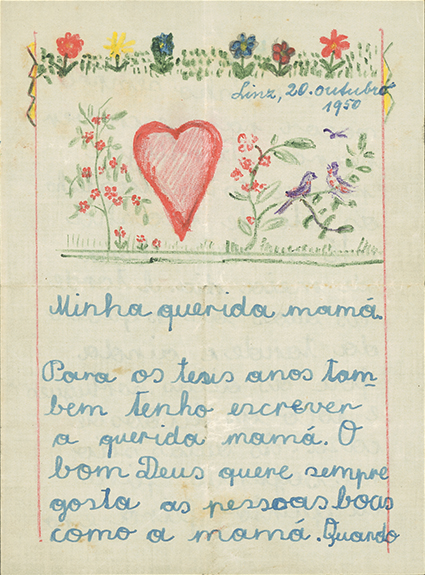 Linz, 20. outubro
1950
Minha querida mamá.
Para os teus anos tam-
bem tenho escrever
a querida mamá. O
bom Deus quere sempre
gosta as pessoas boas
como a mamá. Quando